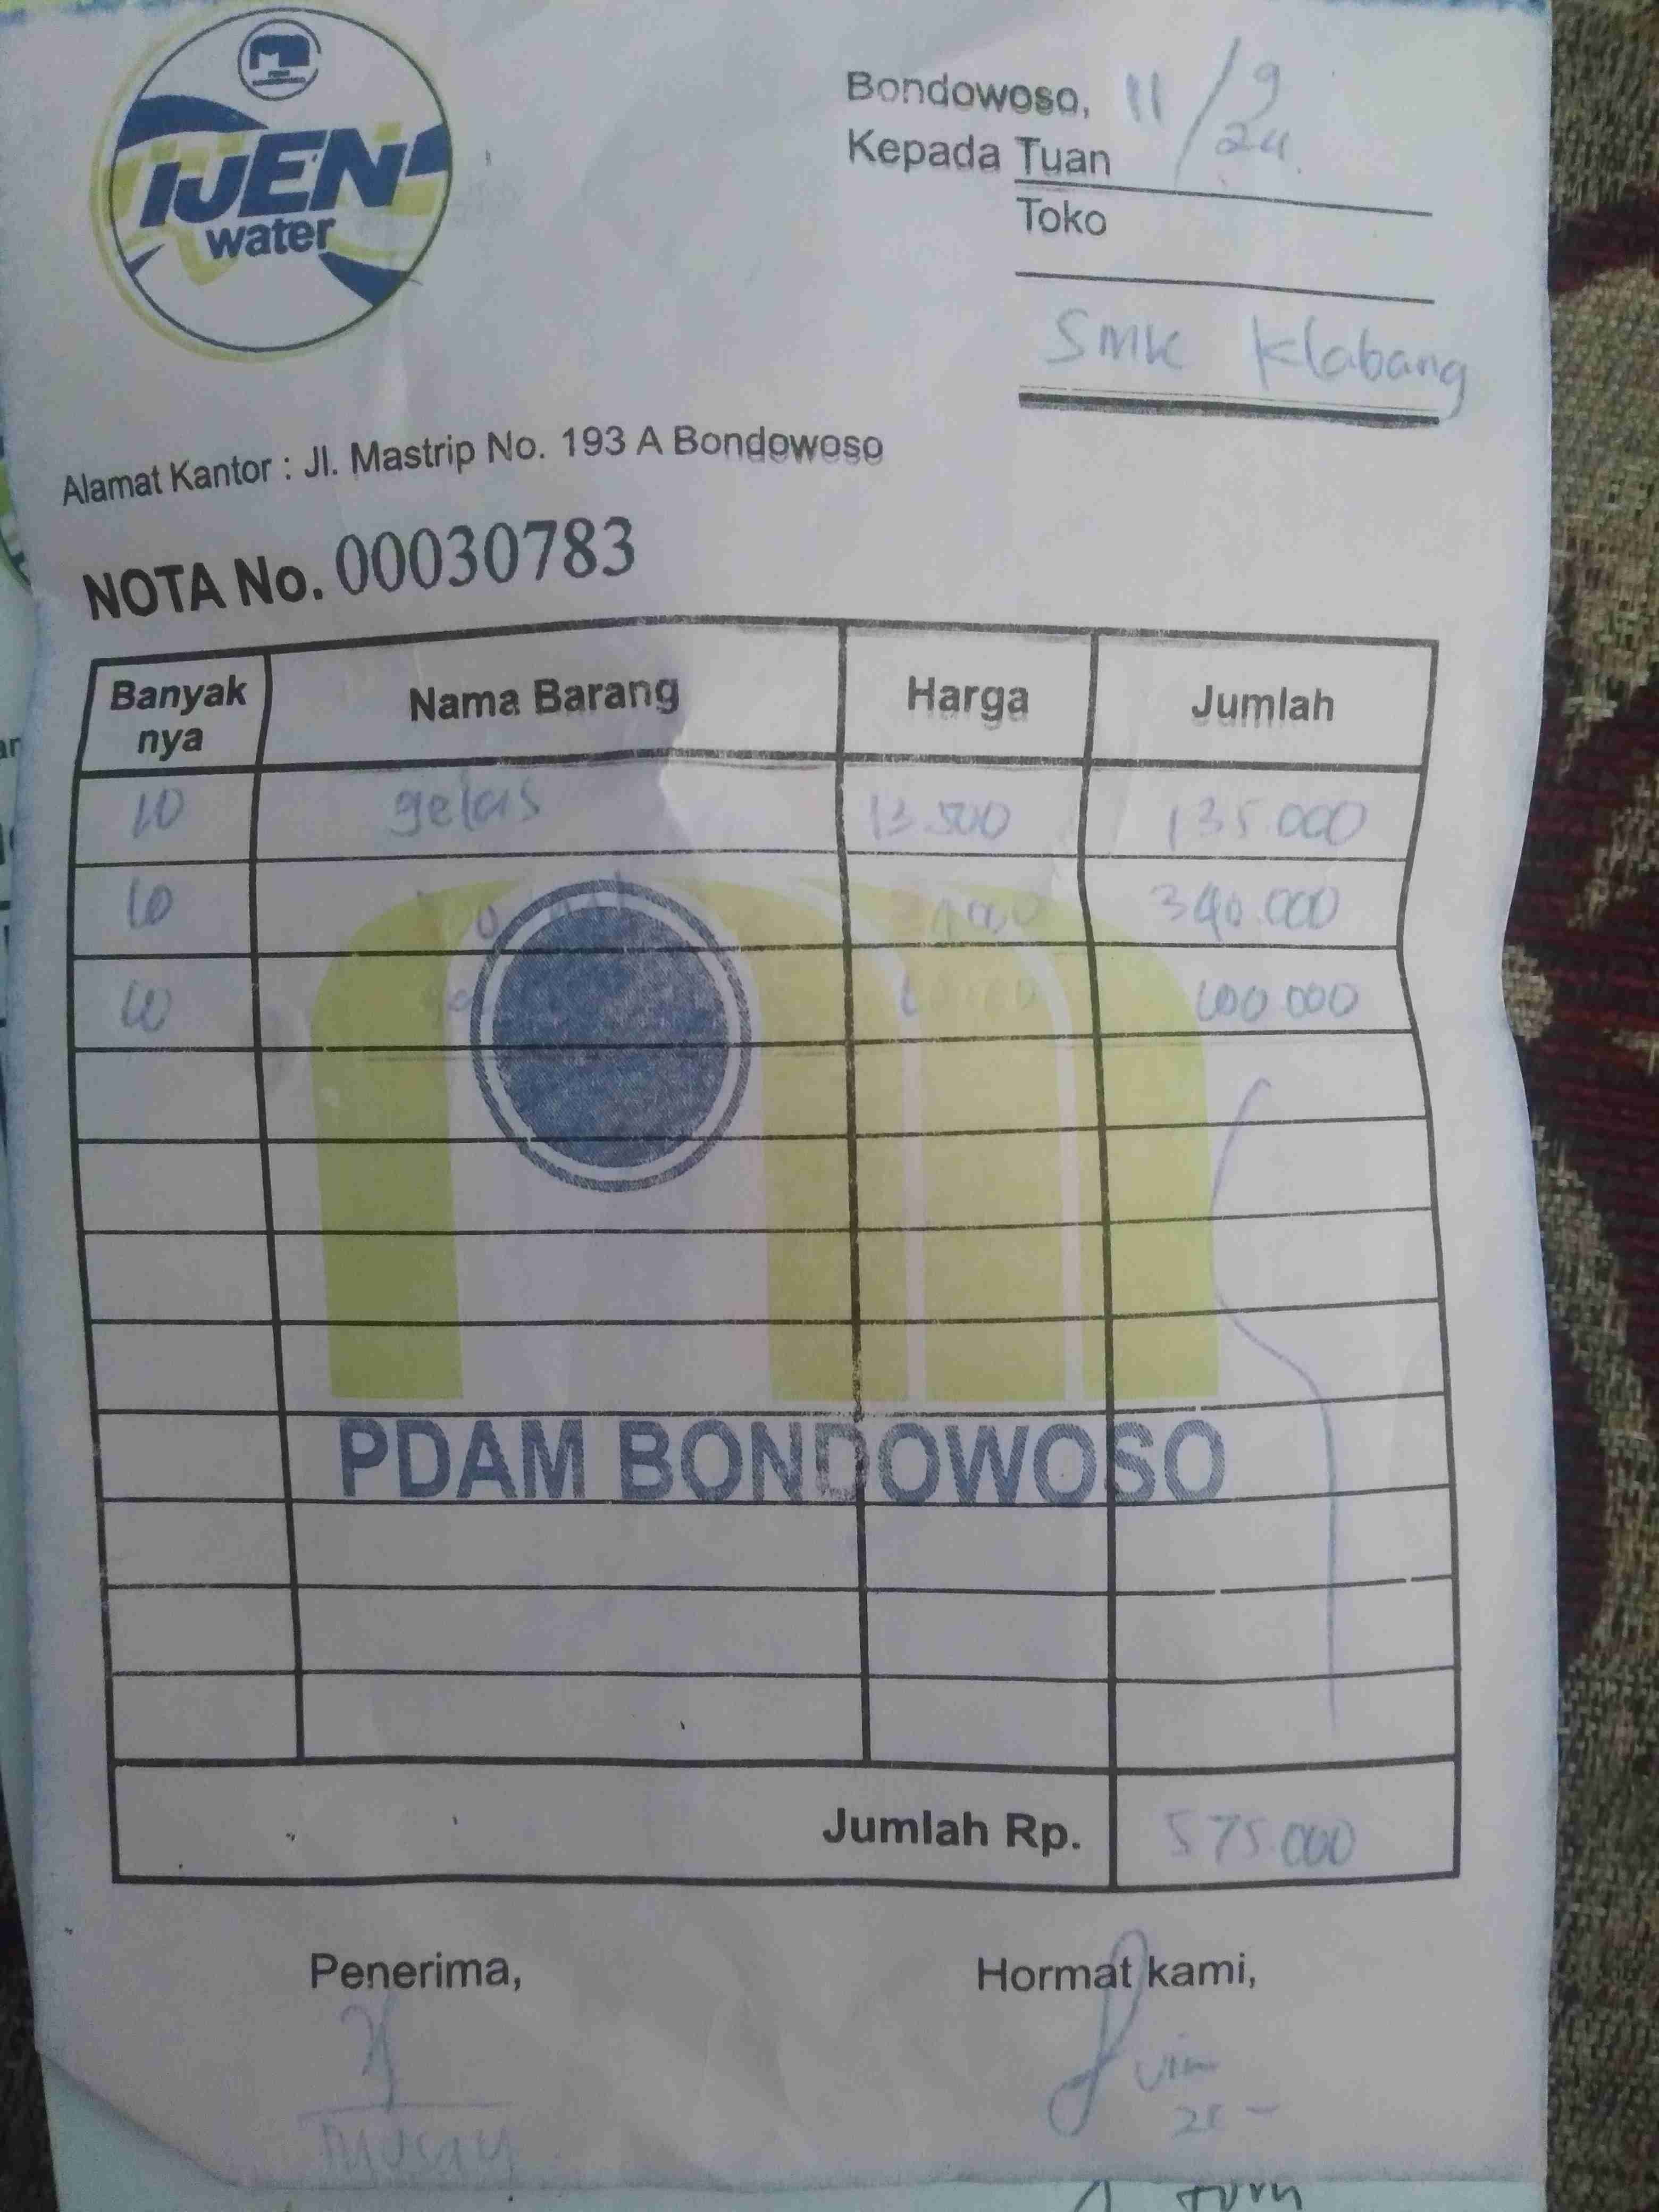 IJEN
water
Bondowoso, 11/9
24
Kepada Tuan
Toko
SMK Klabang
Alamat Kantor : Jl. Mastrip No. 193 A Bondowoso
NOTA No. 00030783
Banyak nya Nama Barang Harga Jumlah
10 gelas 13.500 135.000
10 340.000
10 100 000
PDAM BONDOWOSO
Jumlah Rp. 575.000
Penerima, Hormat kami,